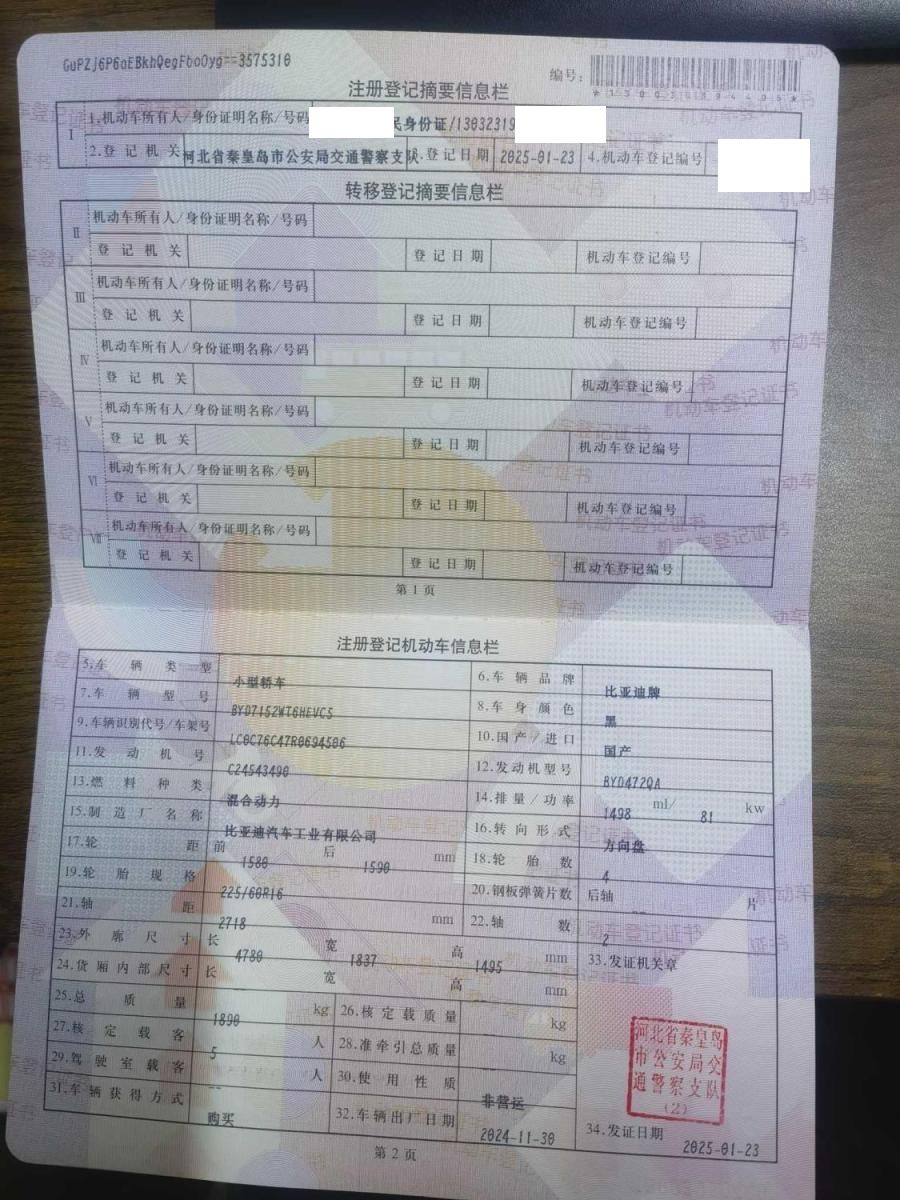 GuPZJ6P6aEBkhQegFbaOyg==3575310
编号:
注册登记摘要信息栏
I 1.机动车所有人/身份证明名称/号码 民身份证/13032319
2.登记机关 河北省秦皇岛市公安局交通警察支队 登记日期 2025-01-23 4.机动车登记编号
转移登记摘要信息栏
II 机动车所有人/身份证明名称/号码
登记机关 登记日期 机动车登记编号
III 机动车所有人/身份证明名称/号码
登记机关 登记日期 机动车登记编号
IV 机动车所有人/身份证明名称/号码
登记机关 登记日期 机动车登记编号
V 机动车所有人/身份证明名称/号码
登记机关 登记日期 机动车登记编号
VI 机动车所有人/身份证明名称/号码
登记机关 登记日期 机动车登记编号
VII 机动车所有人/身份证明名称/号码
登记机关 登记日期 机动车登记编号
第1页
注册登记机动车信息栏
5.车辆类型 小型轿车 6.车辆品牌 比亚迪牌
7.车辆型号 BYD7152WT6HEVC5 8.车身颜色 黑
9.车辆识别代号/车架号 LC0C76C47R0694506 10.国产/进口 国产
11.发动机号 C24543490 12.发动机型号 BYD472QA
13.燃料种类 混合动力 14.排量/功率 1498 ml/ 81 kw
15.制造厂名称 比亚迪汽车工业有限公司 16.转向形式 方向盘
17.轮距 前 1580 后 1590 mm 18.轮胎数 4
19.轮胎规格 225/60R16 20.钢板弹簧片数 后轴 -- 片
21.轴距 2718 mm 22.轴数 2
23.外廓尺寸 长 4780 宽 1837 高 1495 mm 33.发证机关章
24.货厢内部尺寸 长 宽 高 mm
25.总质量 1890 kg 26.核定载质量 kg
27.核定载客 5 人 28.准牵引总质量 kg
29.驾驶室载客 -- 人 30.使用性质 非营运
31.车辆获得方式 购买 32.车辆出厂日期 2024-11-30 34.发证日期 2025-01-23
河北省秦皇岛
市公安局交
通警察支队
(2)
第2页